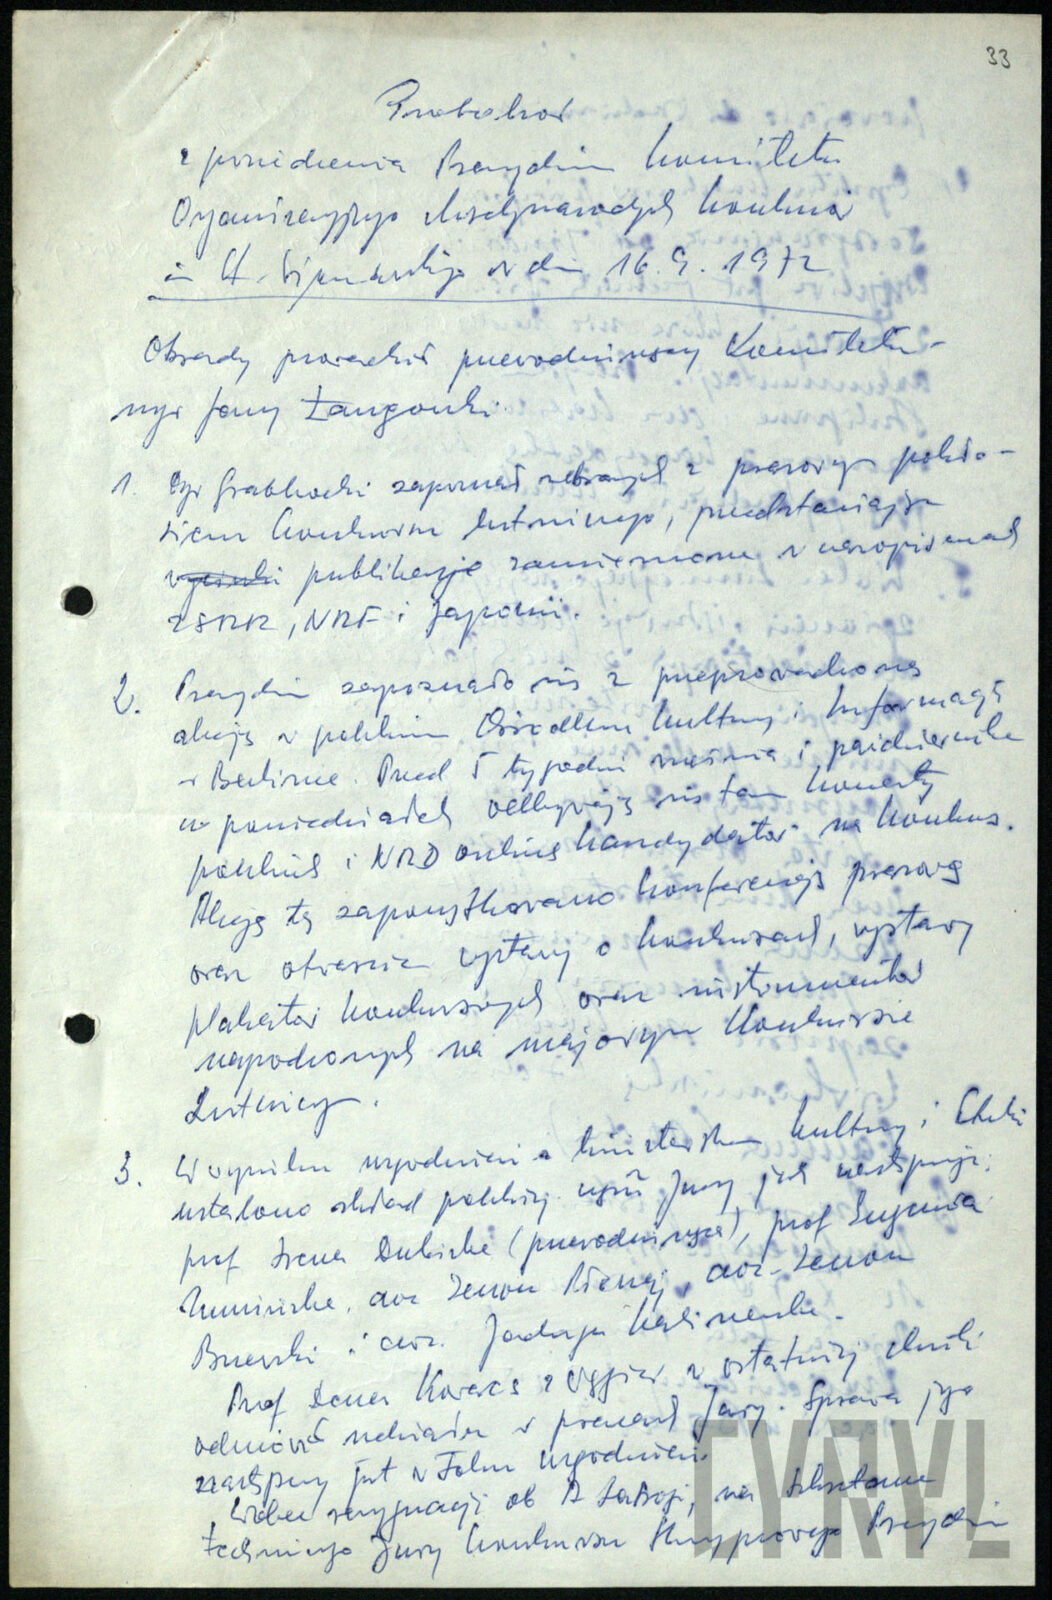 33
Protokół
z posiedzenia Prezydium Komitetu
Organizacyjnego Międzynarodowych Konkursów
im H. Wieniawskiego w dn 16.9.1972
Obrady prowadził przewodniczący Komitetu -
mgr Jerzy Łangowski.
1. Mgr Grabkowski zapoznał zebranych z prasowym pokło-
siem Konkursu Lutniczego, przedstawiając
wycinki publikacje zamieszczone w czasopismach
ZSRR, NRF i Japonii.
2. Prezydium zapoznało się z przeprowadzoną
akcją w polskim Ośrodku Kultury i Informacji
w Berlinie. Przed 5 tygodni września i października
w poniedziałek odbywają się tam koncerty
polskich i NRD owskich kandydatów na konkurs.
Akcję tę zapoczątkowano konferencją prasową
oraz otwarciem wystawy o konkursach, wystawy
plakatów konkursowych oraz instrumentów
nagrodzonych na majowym Konkursie
Lutniczym.
3. W wyniku uzgodnień z Ministerstwem Kultury i Sztuki
ustalono skład polskiej części Jury jak następuje:
prof Irena Dubiska (przewodnicząca), prof Eugenia
Umińska, doc Zenon Płoszaj, doc. Zenon
Brzewski i doc. Jadwiga Kaliszewska.
Prof Denes Kovacs z Węgier w ostatniej chwili
odmówił udziału w pracach Jury. Sprawa jego
zastępcy jest w toku uzgodnień.
Wobec rezygnacji ob. na sekretarza
technicznego Jury Konkursu Skrzypcowego Prezydium
CYRYL